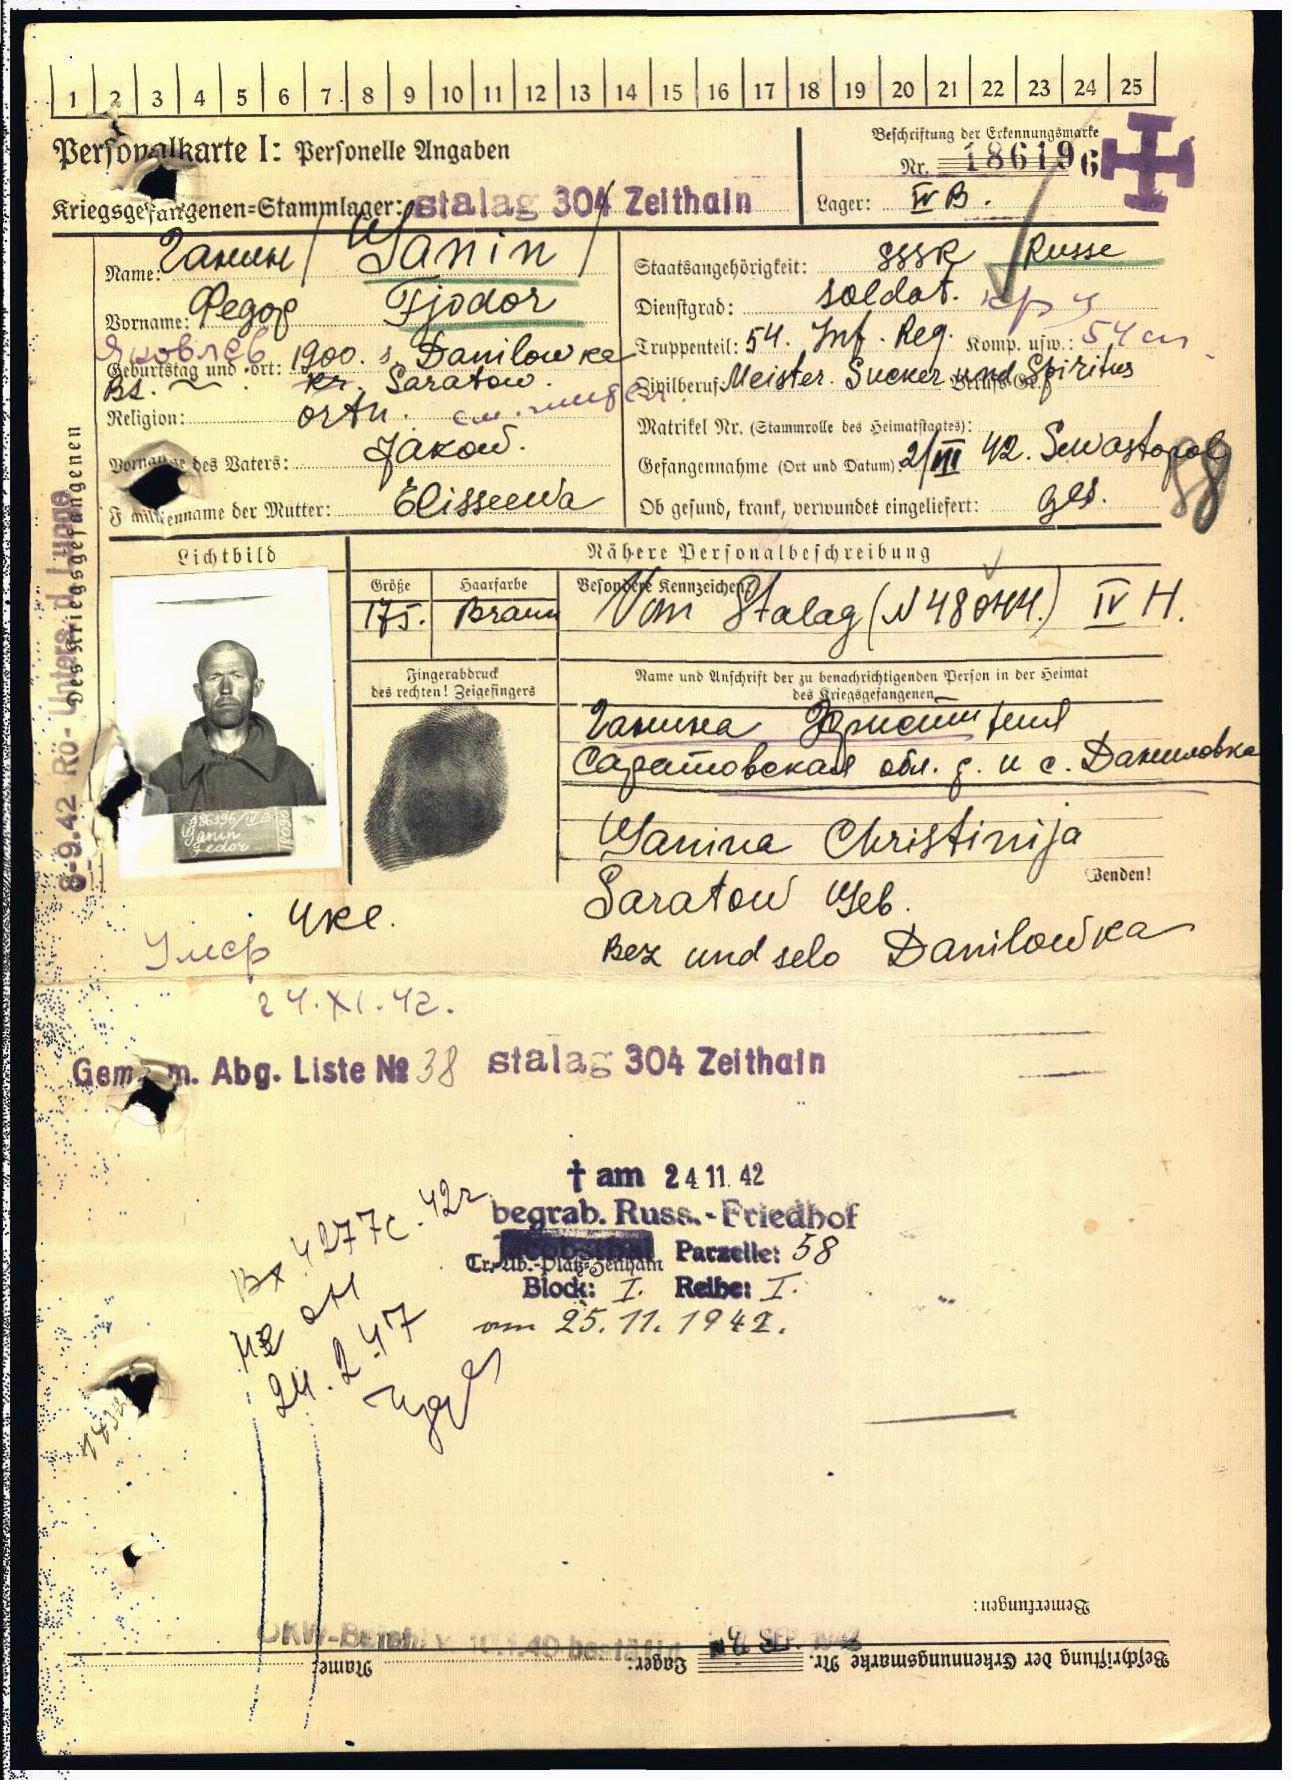 1 2 3 4 5 6 7 8 9 10 11 12 13 14 15 16 17 18 19 20 21 22 23 24 25
Personalkarte I: Personelle Angaben
Beschriftung der Erkennungsmarke
Nr. 186196
Kriegsgefangenen-Stammlager: stalag 304 Zeithain
Lager: IV B.
Name: Ганин / Ganin /
Vorname: Федор Fjodor
Яковлев
Geburtstag und -ort: 1900. s. Danilowka
Kr. Saratow.
Religion: orth.
Vorname des Vaters: Jakow.
Familienname der Mutter: Elisseewa
Staatsangehörigkeit: SSSR Russe
Dienstgrad: soldat.
Truppenteil: 54. Inf. Reg. Komp. usw.: 54 сп
Zivilberuf: Meister. Sucker und Spiritus
Matrikel Nr. (Stammrolle des Heimatstaates):
Gefangennahme (Ort und Datum) 2/VII 42. Sewastopol
Ob gesund, krank, verwundet eingeliefert: ges.
88
des Kriegsgefangenen
8-9.42 Rö- Unters. d. Lunge
Lichtbild
Nähere Personalbeschreibung
Größe
175.
Haarfarbe
Braun
Besondere Kennzeichen:
Vom Stalag (N 48044.) IV H.
186196/IV B
Ganin
Fedor
Fingerabdruck
des rechten! Zeigefingers
Name und Anschrift der zu benachrichtigenden Person in der Heimat
des Kriegsgefangenen
Ганина
Саратовская обл. с. Даниловка
Ganina Christinija
Wenden!
Saratow Geb.
Bez und selo Danilowka
Умер
24.XI.42.
Gem. m. Abg. Liste № 38 stalag 304 Zeithain
† am 24 11. 42
begrab. Russ.-Friedhof
Jacobsthal Parzelle: 58
Tr.-Üb.-Platz-Zeithain
Block: I. Reihe: I.
am 25.11.1942.
Вх 4277с-42г
24.2.47
Bemerkungen:
OKW-Befehl v. 10.1.40 bestätigt
SEP. 1942
Beschriftung der Erkennungsmarke Nr. Lager: Name: